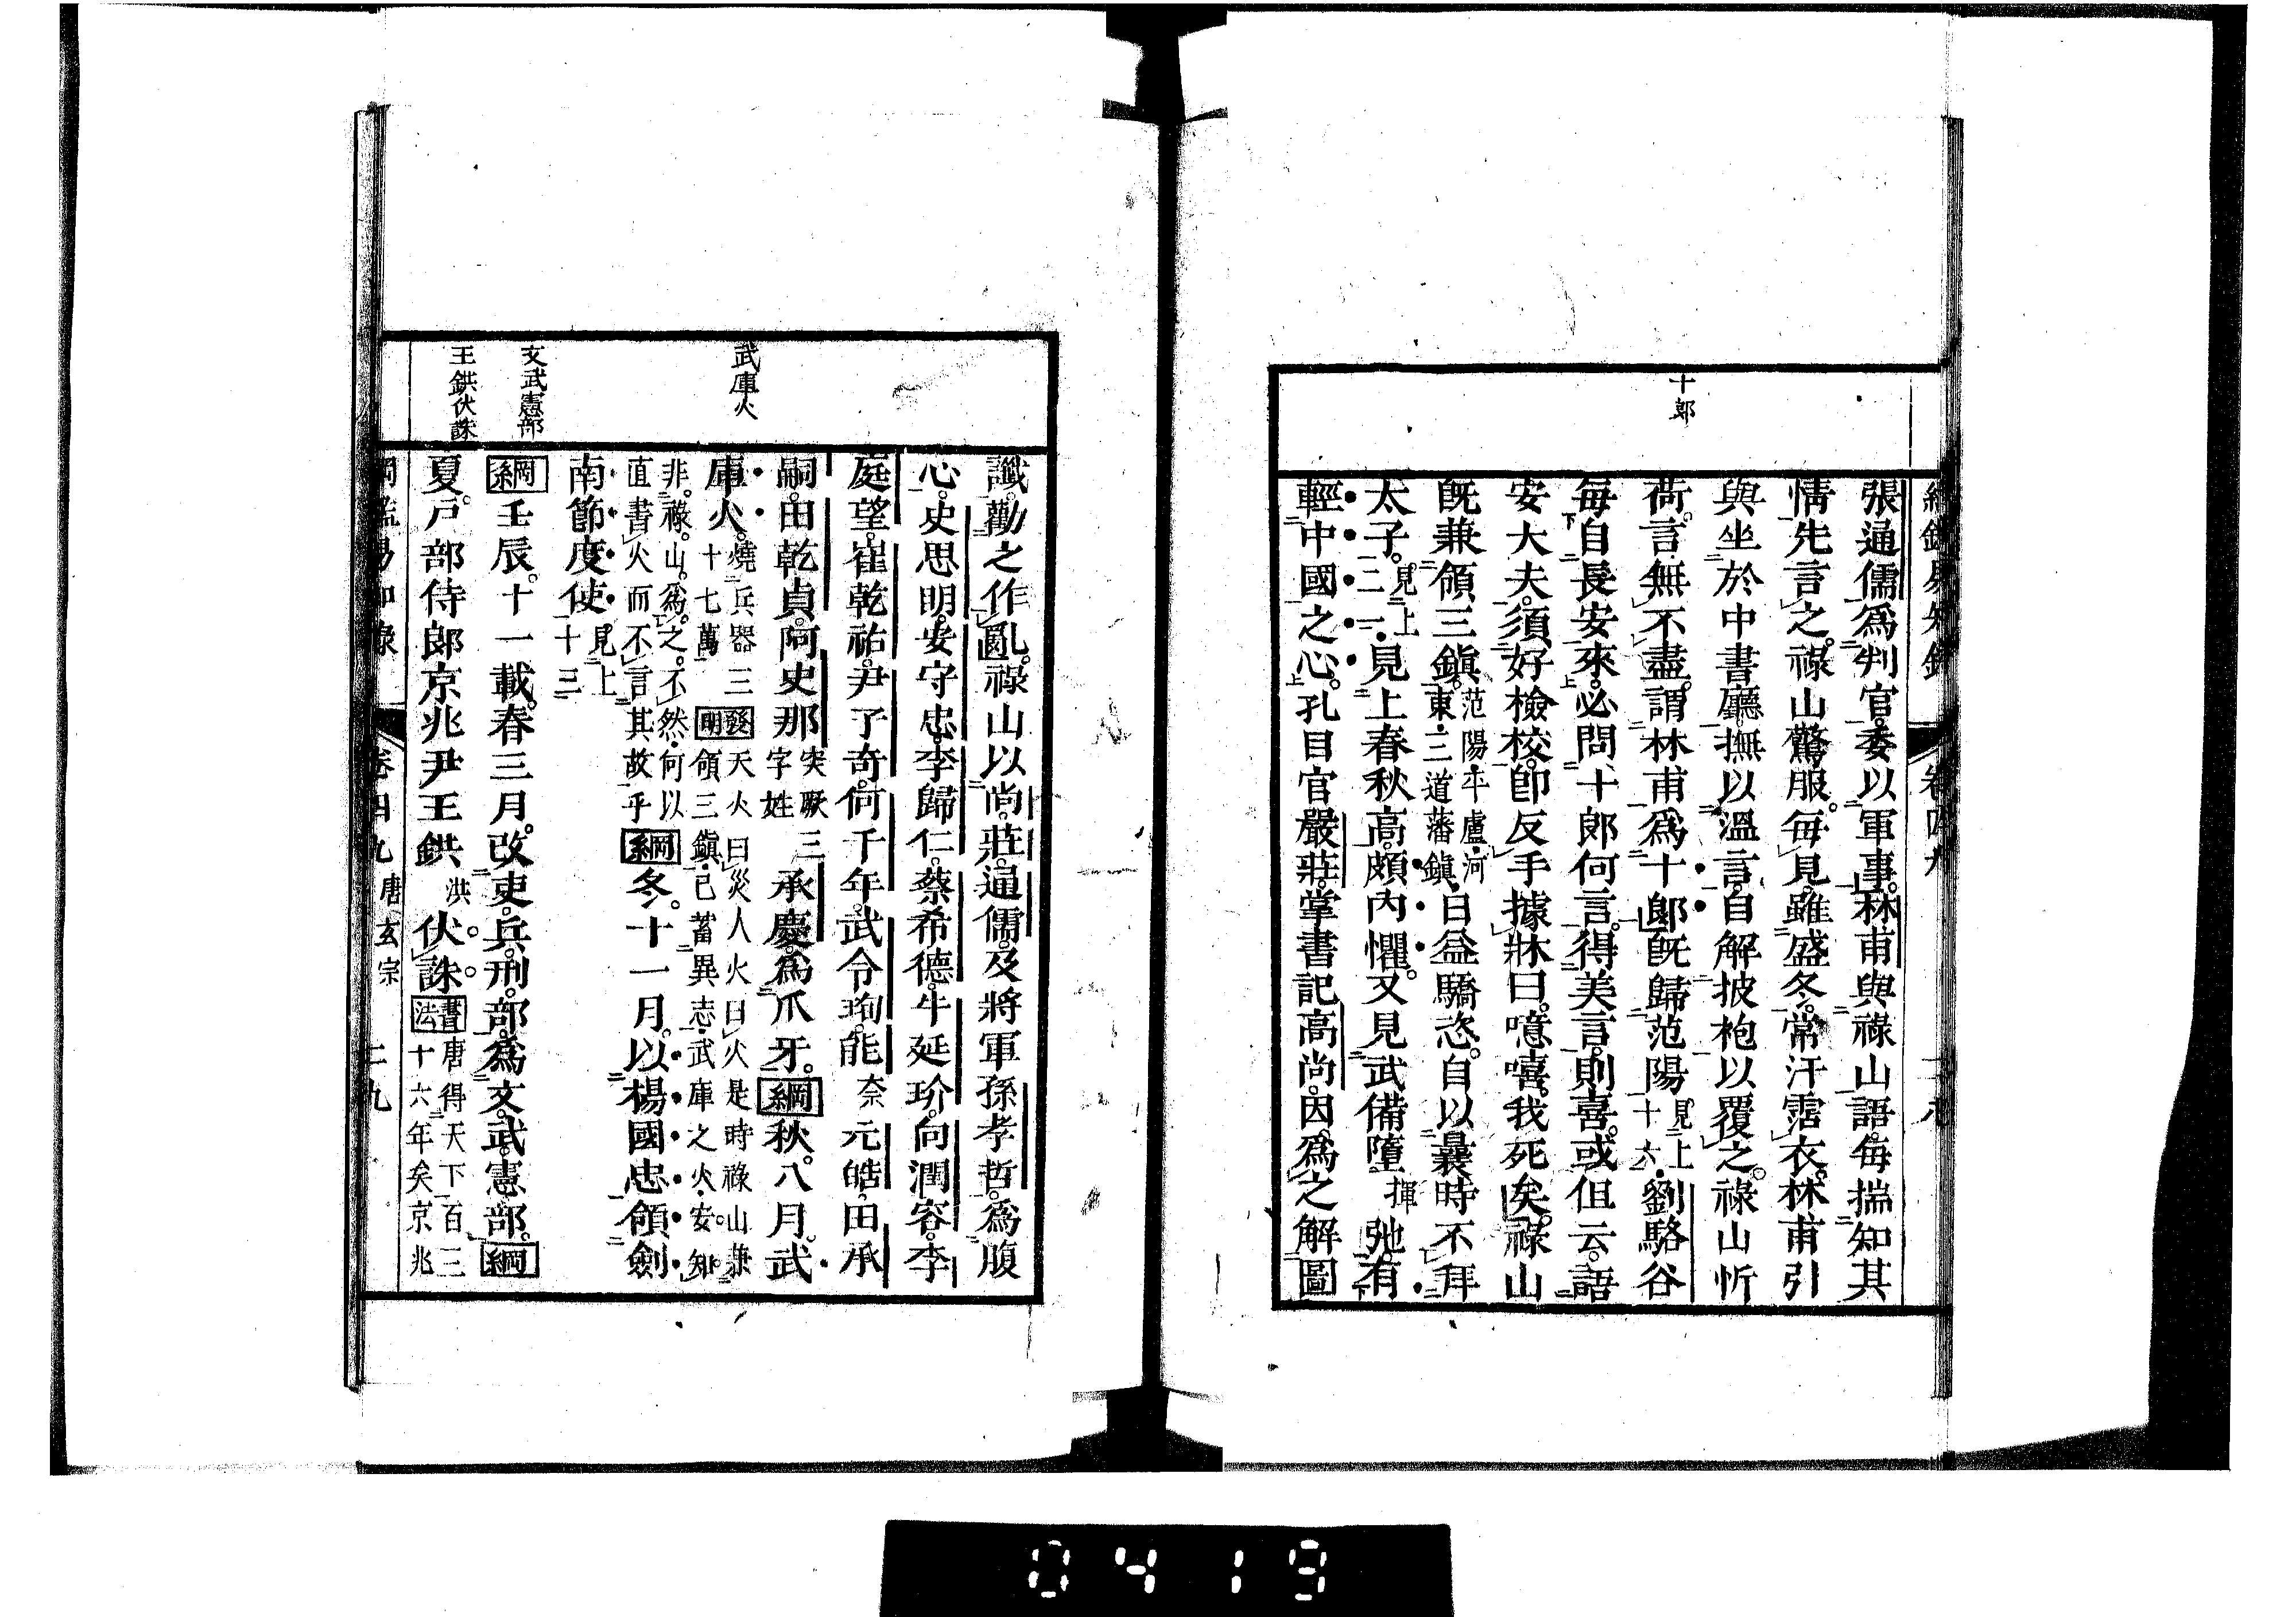 十郎
張通儒為判官。委以軍事。林甫與祿山語。每揣知其
情先言之。祿山驚服。每見。雖盛冬。常汗霑衣。林甫引
與坐於中書廳。撫以溫言。自解披袍以覆之。祿山忻
荷。言無不盡。謂林甫為十郎。既歸范陽。見上十六。劉駱谷
每自長安來。必問十郎何言。得美言。則喜。或但云。語
安大夫。須好檢校。即反手據牀曰。噫嘻。我死矣。祿山
既兼領三鎮。范陽平盧河東三道藩鎮。日益驕恣。自以曩時不拜
太子。見上二一。見上春秋高。頗內懼。又見武備墮揮弛。有
輕中國之心。孔目官嚴莊。掌書記高尚。因為之解圖
卷四九
武庫火
文武憲部
王鉷伏誅
讖。勸之作亂。祿山以尚。莊。通儒。及將軍孫孝哲。為腹
心。史思明。安守忠。李歸仁。蔡希德。牛延玠。向潤容。李
庭望。崔乾祐。尹子奇。何千年。武令珣。能奈元皓。田承
嗣。田乾貞。阿史那突厥三字姓承慶。為爪牙。綱秋。八月。武
庫火。燒兵器三十七萬發明天火曰災人火曰火是時祿山兼領三鎮已蓄異志武庫之火安知
非祿山為之不然何以直書火而不言其故乎綱冬。十一月。以楊國忠領劍
南節度使。見上十三
綱壬辰。十一載。春三月。改吏。兵。刑。部。為文。武。憲部。綱
夏。戶部侍郎京兆尹王鉷洪伏誅。書法唐得天下百三十六年矣京兆
綱鑑易知錄 卷四九 唐玄宗 二九
0419